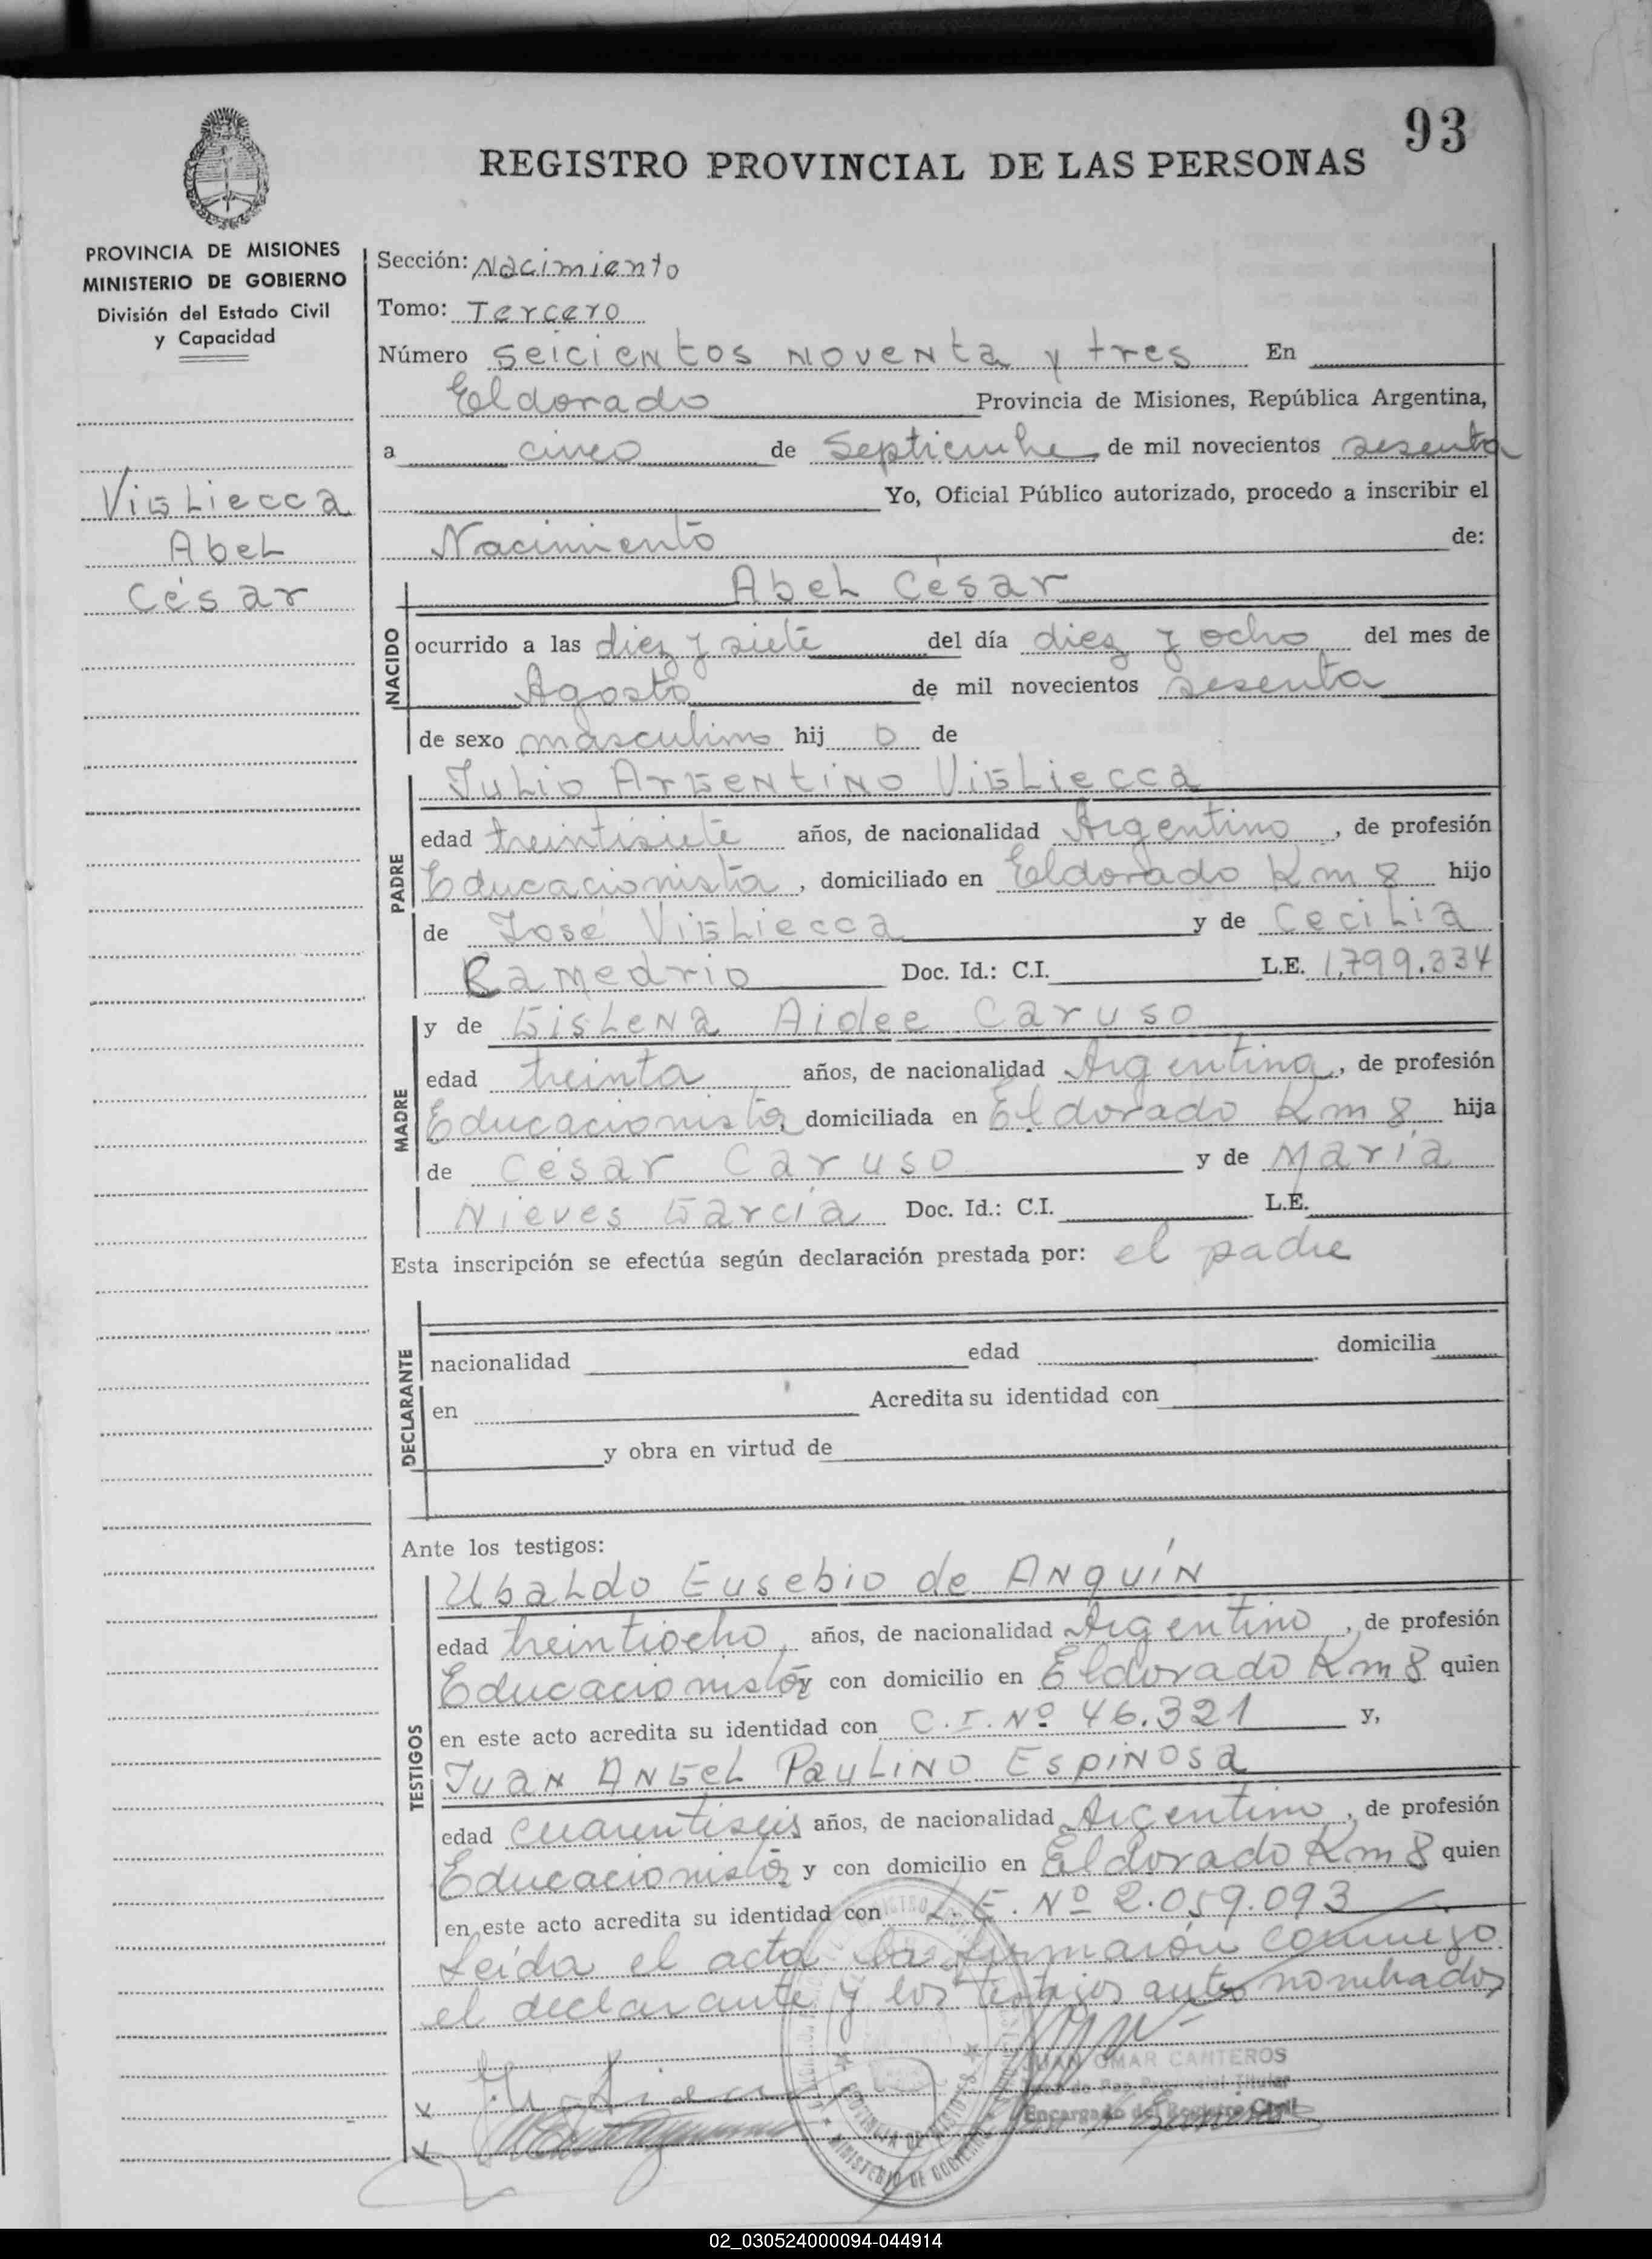 93
REGISTRO PROVINCIAL DE LAS PERSONAS
PROVINCIA DE MISIONES
MINISTERIO DE GOBIERNO
División del Estado Civil
y Capacidad
Vigliecca
Abel
César
Sección: Nacimiento
Tomo: Tercero
Número seicientos noventa y tres En
Eldorado Provincia de Misiones, República Argentina,
a cinco de Septiembre de mil novecientos sesenta
Yo, Oficial Público autorizado, procedo a inscribir el
Nacimiento de:
Abel César
NACIDO
ocurrido a las diez y siete del día diez y ocho del mes de
Agosto de mil novecientos sesenta
de sexo masculino hij o de
Julio Argentino Vigliecca
PADRE
edad treintisiete años, de nacionalidad Argentino, de profesión
Educacionista, domiciliado en Eldorado Km 8 hijo
de José Vigliecca y de Cecilia
Ramedrio Doc. Id.: C.I. L.E. 1.799.334
MADRE
y de Gislena Aidee Caruso
edad treinta años, de nacionalidad Argentina, de profesión
Educacionista, domiciliada en Eldorado Km 8 hija
de César Caruso y de María
Nieves García Doc. Id.: C.I. L.E.
Esta inscripción se efectúa según declaración prestada por: el padre
DECLARANTE
nacionalidad edad domicilia
en Acredita su identidad con
y obra en virtud de
Ante los testigos:
TESTIGOS
Ubaldo Eusebio de Anquín
edad treintiocho, años, de nacionalidad Argentino, de profesión
Educacionista y con domicilio en Eldorado Km 8 quien
en este acto acredita su identidad con C.I. Nº 46.321 y,
Juan Angel Paulino Espinosa
edad cuarentiseis años, de nacionalidad Argentino, de profesión
Educacionista y con domicilio en Eldorado Km 8 quien
en este acto acredita su identidad con L.E. Nº 2.059.093
Leída el acta la firmaron conmigo
el declarante y los testigos antes nombrados
JUAN OMAR CANTEROS
Encargado del Registro Civil
PROVINCIA DE MISIONES
MINISTERIO DE GOBIERNO
02_030524000094-044914